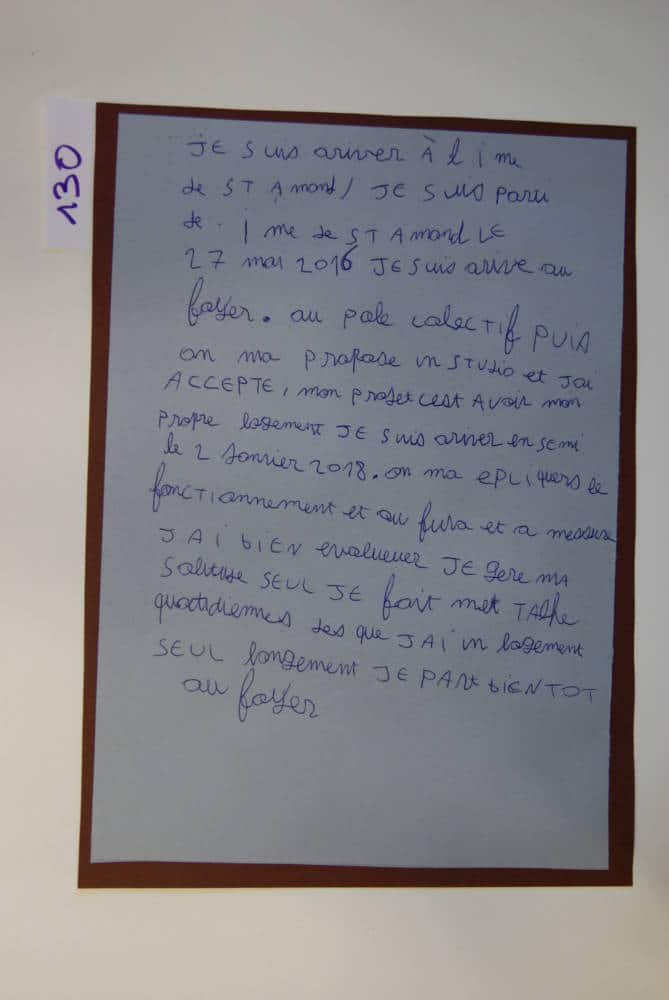 130
JE suis ariver À l i me
de ST Amond / JE suis paru
de. i me de ST Amond LE
27 mai 2016 JE suis arive au
foyer. au pole colectif PUIS
on ma propose un STUdio et Jai
ACCEPTE, mon projet cest AVOIR mon
propre logement JE suis ariver en semi
le 2 Janvier 2018. on ma epliquers le
fonctionnement et au fura et a mesure
JAI bIEN evalueuer JE gere MA
SEUL JE fait met TAche
quotidiennes des que JAI un logement
SEUL longement JE PARt bIENTOT
au foyer